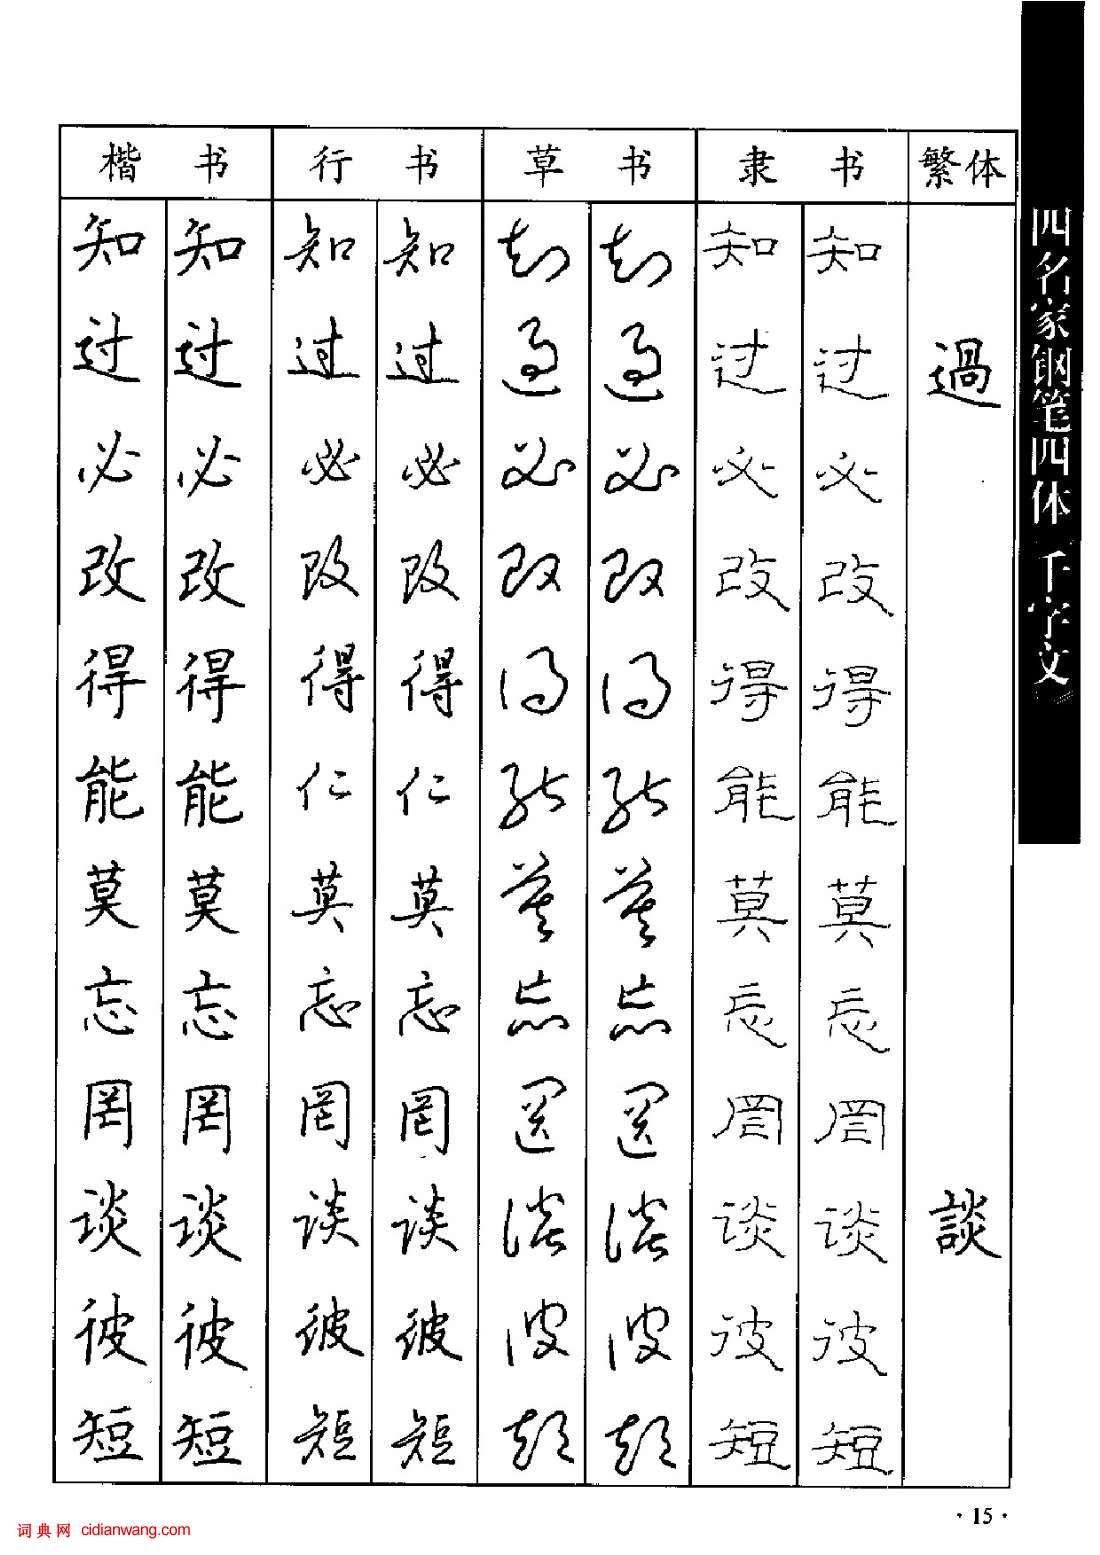 楷书 行书 草书 隶书 繁体
知 知 知 知 知 知 知 知
过 过 过 过 过 过 过 过 過
必 必 必 必 必 必 必 必
改 改 改 改 改 改 改 改
得 得 得 得 得 得 得 得
能 能 仁 仁 能 能 能 能
莫 莫 莫 莫 莫 莫 莫 莫
忘 忘 忘 忘 忘 忘 忘 忘
罔 罔 罔 罔 罔 罔 罔 罔
谈 谈 谈 谈 谈 谈 谈 谈 談
彼 彼 彼 彼 彼 彼 彼 彼
短 短 短 短 短 短 短 短
四名家钢笔四体 千字文
·15·
词典网 cidianwang.com